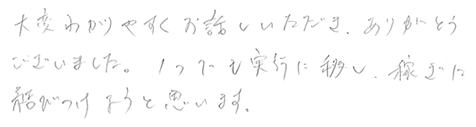 大変わかりやすくお話しいただき、ありがとう
ございました。1つでも実行に移し、稼ぎに
結びつけようと思います。